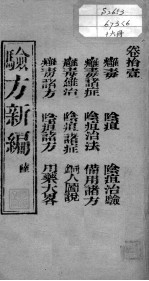 卷拾壹
癰毒 陰疽 陰疽治驗
癰毒諸症 陰疽治法 備用諸方
癰毒雜治 陰疽諸症 銅人圖說
癰毒諸方 陰疽諸方 用藥大畧
驗方新編